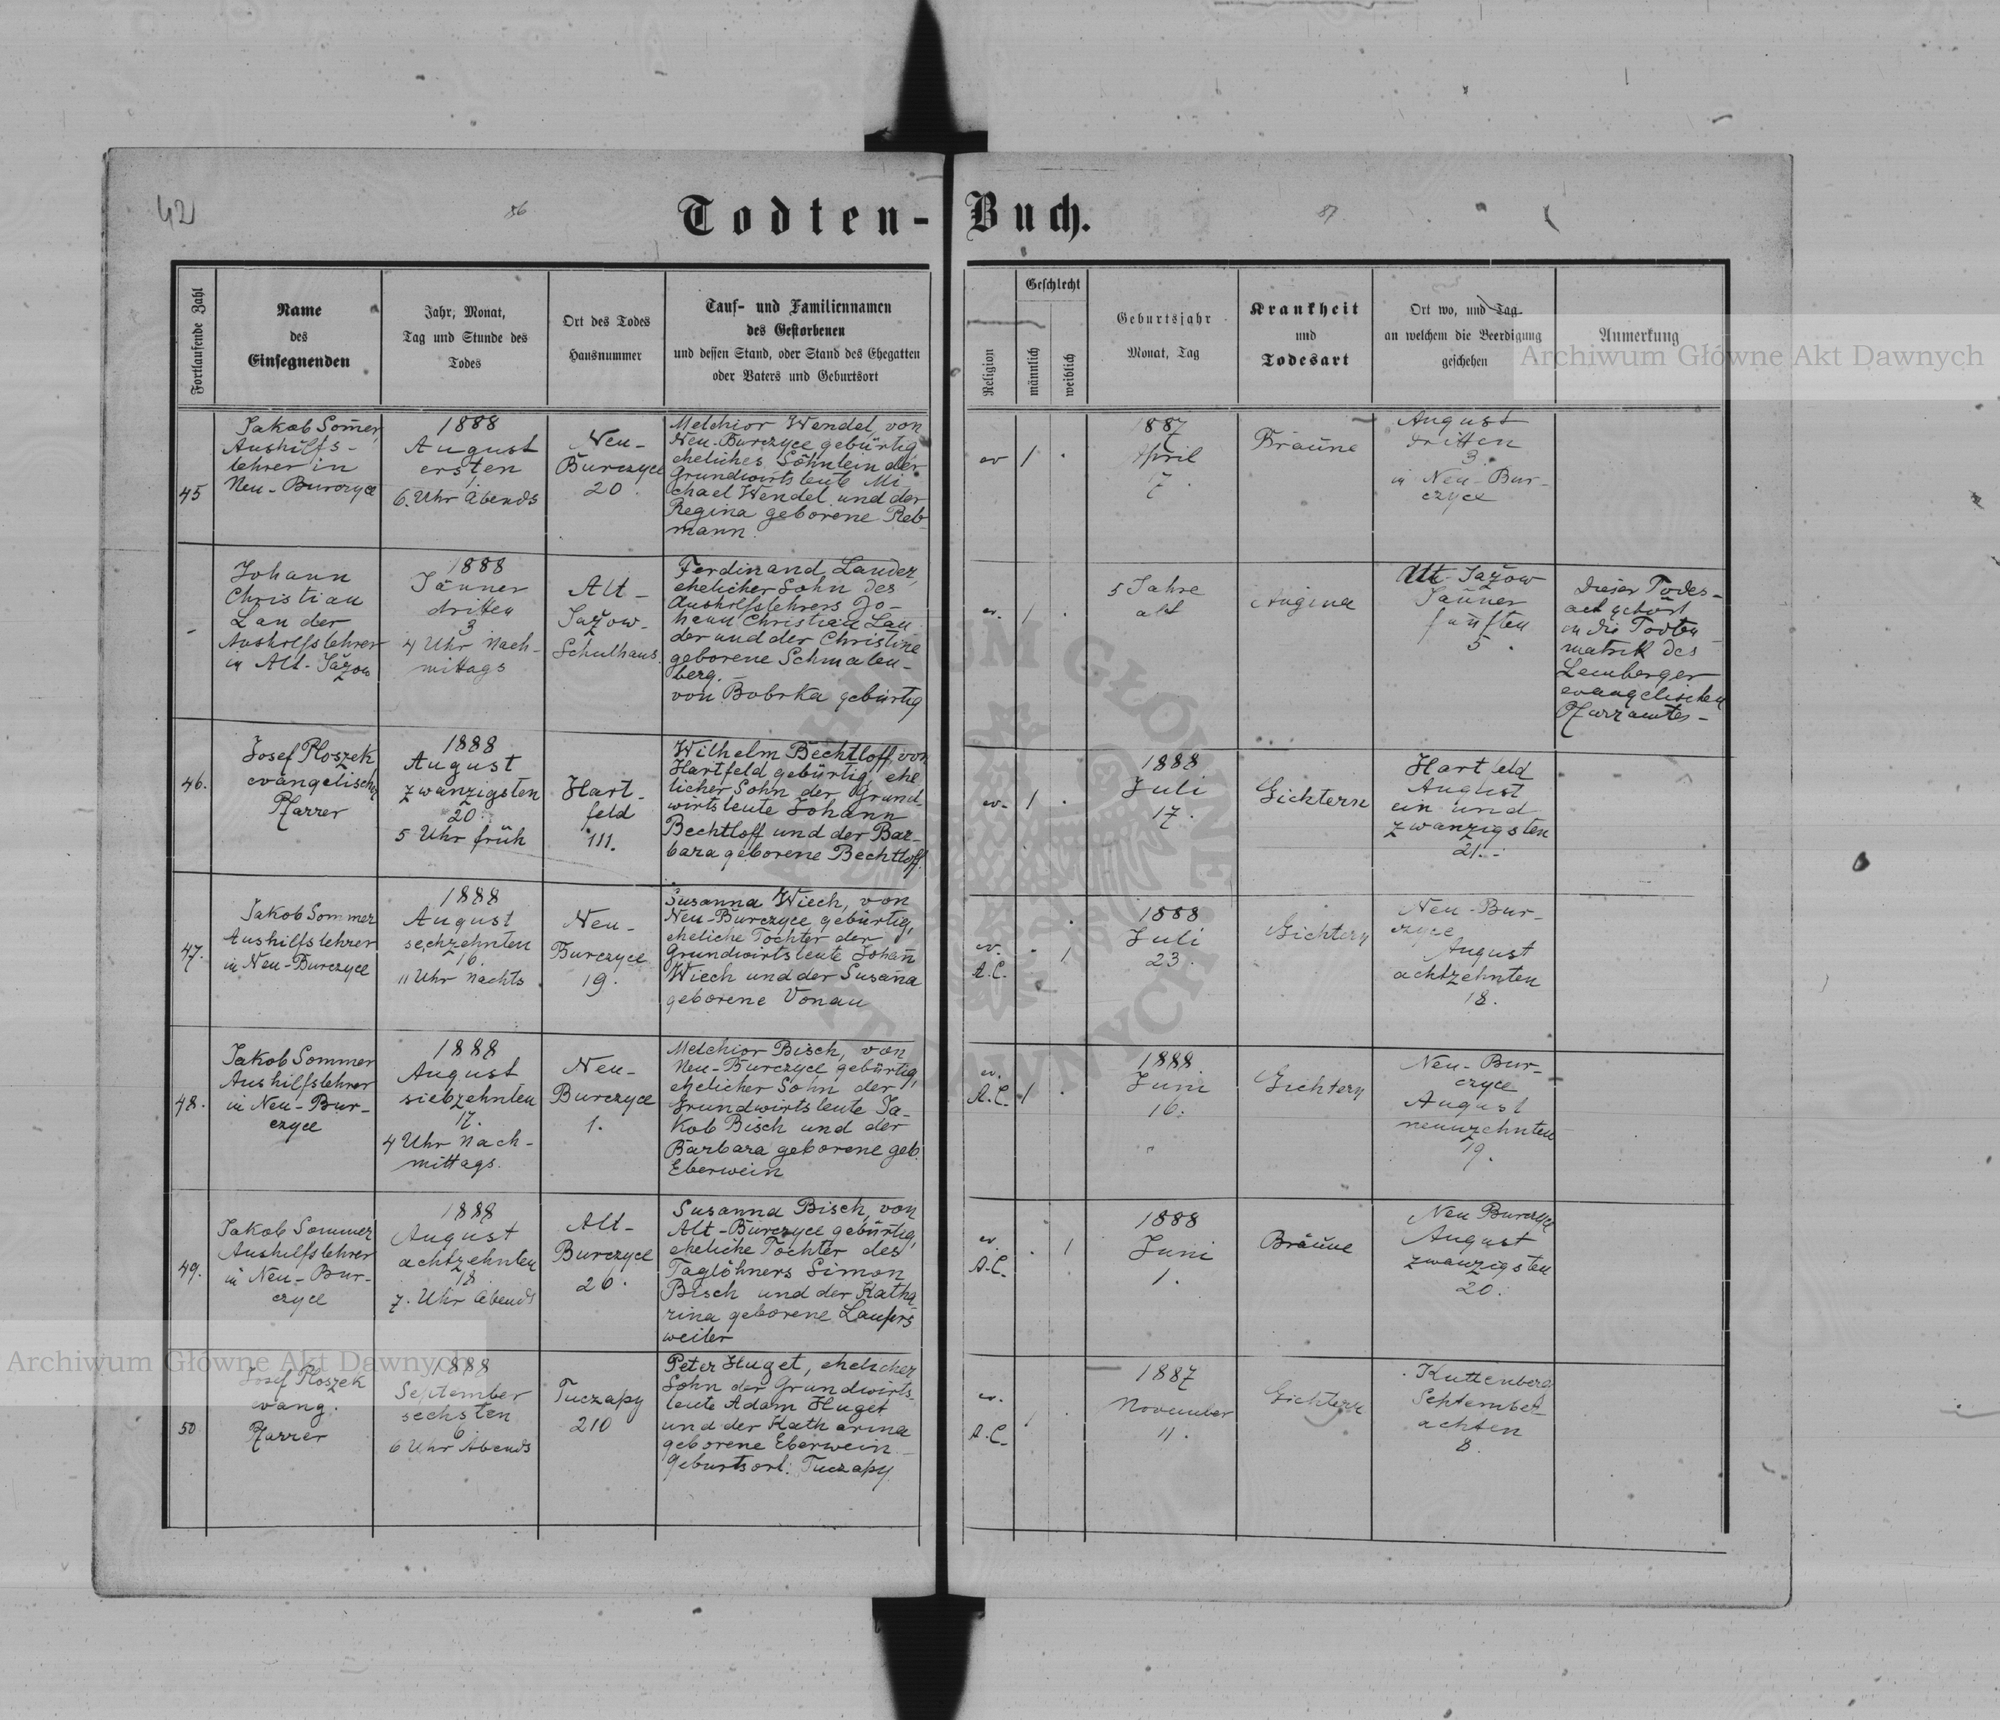 42
86
87
Todten-Buch.
Fortlaufende Zahl
Name
des
Einsegnenden
Jahr, Monat,
Tag und Stunde des
Todes
Ort des Todes
Hausnummer
Tauf- und Familiennamen
des Gestorbenen
und dessen Stand, oder Stand des Ehegatten
oder Vaters und Geburtsort
Religion
Geschlecht
männlich
weiblich
Geburtsjahr
Monat, Tag
Krankheit
und
Todesart
Ort wo, und Tag
an welchem die Beerdigung
geschehen
Anmerkung
Archiwum Główne Akt Dawnych
45
Jakob Som̄er,
Aushilfs-
lehrer in
Neu-Burczyce
1888
August
ersten
1
6. Uhr Abends
Neu-
Burczyce
20.
Melchior Wendel, von
Neu-Burczyce gebürtig,
eheliches Söhnlein der
Grundwirtsleute Mi-
chael Wendel und der
Regina geborene Reb-
mann.
ev
1
.
887
April
7.
Bräune
August
dritten
3.
in Neu-Bur-
czyce
-
Johann
Christian
Lander
Aushilfslehrer
in Alt-Jażow
1888
Jänner
dritten
3
4 Uhr Nach-
mittags
Alt-
Jażow-
Schulhaus.
Ferdinand Lander,
ehelicher Sohn des
Aushilfslehrers Jo-
hann Christian Lan
der und der Christine
geborene Schmalen-
berg.
von Bobrka gebürtig
ev.
1
.
5 Jahre
alt
Angina
Alt-Jażow
Jänner
fünften
5.
Dieser Todes-
act gehört
in die Todten
matrik des
Lemberger
evangelischen
Pfarramtes-
46.
Josef Ploszek
evangelischer
Pfarrer
1888
August
zwanzigsten
20.
5 Uhr früh
Hart-
feld
111.
Wilhelm Bechtloff, von
Hartfeld gebürtig, ehe
licher Sohn der Grund-
wirtsleute Johann
Bechtloff und der Bar-
bara geborene Bechtloff.
ev.
1
.
1888
Juli
17.
Gichtern
Hartfeld
August
ein und
zwanzigsten
21.-
47.
Jakob Sommer
Aushilfslehrer
in Neu-Burczyce
1888
August
sechzehnten
16.
11 Uhr Nachts.
Neu-
Burczyce
19.
Susanna Wiech, von
Neu-Burczyce gebürtig,
eheliche Tochter der
Grundwirtsleute Johan̄
Wiech und der Susan̄a
geborene Vonau
ev.
A.C.
.
1
1888
Juli
23.
Gichtern
Neu-Bur-
czyce
August
achtzehnten
18.
48.
Jakob Sommer
Aushilfslehrer
in Neu-Bur-
czyce
1888
August
siebzehnten
17.
4 Uhr Nach-
mittags.
Neu-
Burczyce
1.
Melchior Bisch, von
Neu-Burczyce gebürtig,
ehelicher Sohn der
Grundwirtsleute Ja-
kob Bisch und der
Barbara geborene geb.
Eberwein
ev.
A.C.
1
.
1888.
Juni
16.
Gichtern
Neu-Bur-
czyce
August
neunzehnten
19.
49.
Jakob Sommer
Aushilfslehrer
in Neu-Bur-
czyce
1888
August
achtzehnten
18
7. Uhr Abends
Alt-
Burczyce
26.
Susanna Bisch, von
Alt-Burczyce gebürtig,
eheliche Tochter des
Taglöhners Simon
Bisch und der Katha
rina geborene Laufers
weiler
ev.
A.C.
.
1
1888
Juni
1.
Bräune
Neu Burczyce
August
zwanzigsten
20.
Archiwum Główne Akt Dawnych
50
Josef Ploszek
evang.
Pfarrer
1888
September
sechsten
6.
6 Uhr Abends
Tuczapy
210
Peter Huget, ehelicher
Sohn der Grundwirts-
leute Adam Huget
und der Katharina
geborene Eberwein
Geburtsort: Tuczapy.
ev.
A.C.
1
.
1887
November
11.
Gichtern
Kuttenberg
September
achten
8.